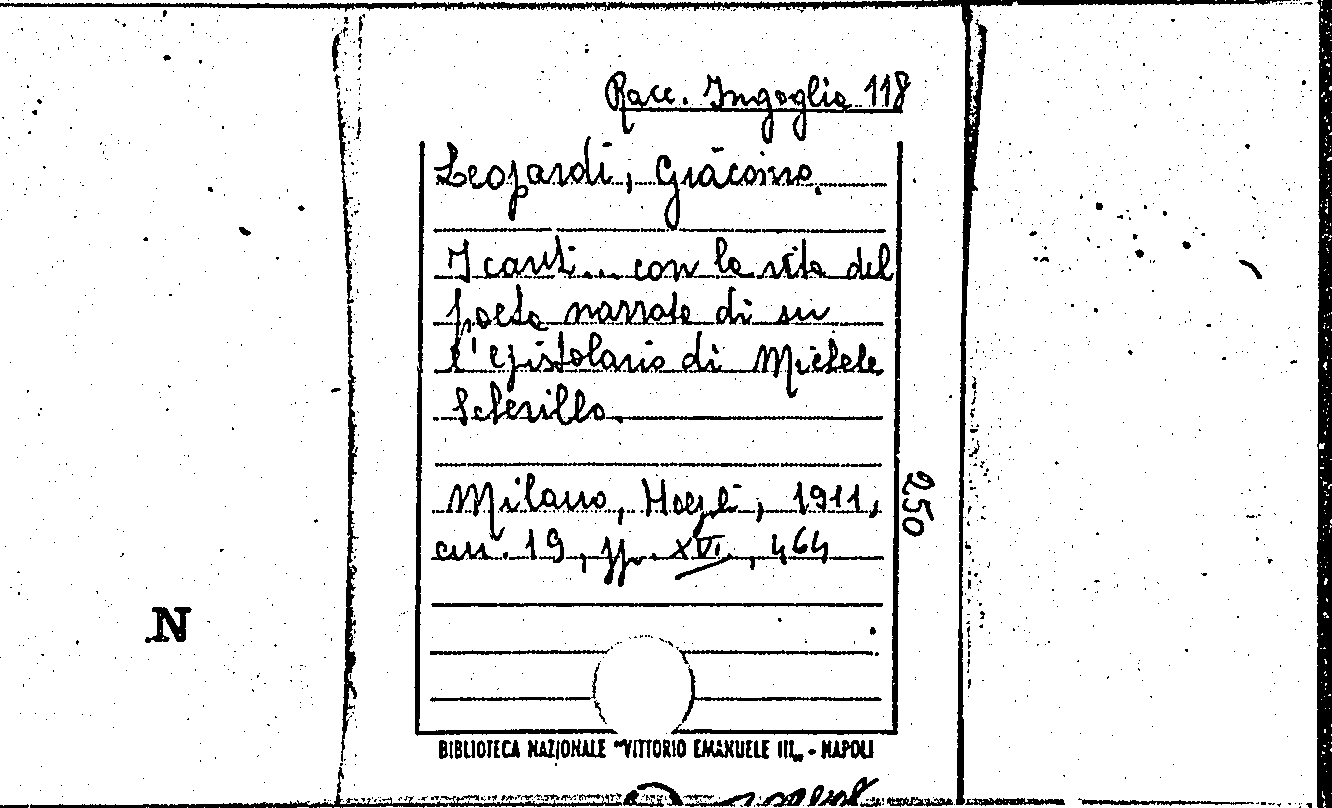 Racc. Ingoglia 118
Leopardi, Giacomo.
I canti... con la vita del
poeta narrata di su
l'epistolario di Michele
Scherillo.
Milano, Hoepli, 1911,
cm. 19, pp. XVI, 464
250
N
BIBLIOTECA NAZIONALE "VITTORIO EMANUELE III„ - NAPOLI